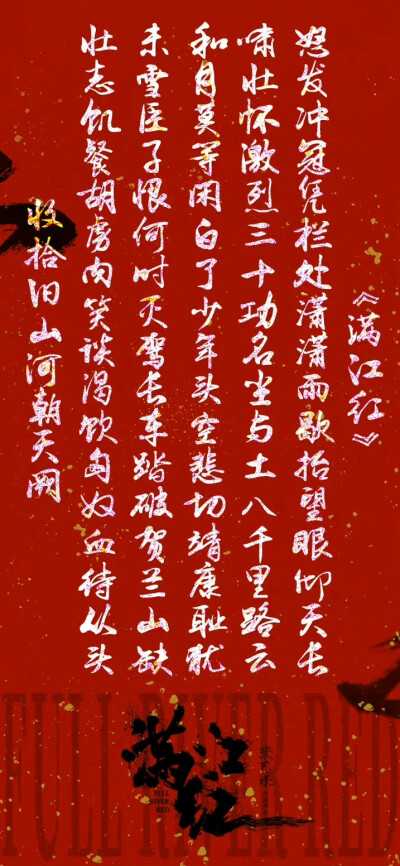 《满江红》
怒发冲冠凭栏处潇潇雨歇抬望眼仰天长
啸壮怀激烈三十功名尘与土八千里路云
和月莫等闲白了少年头空悲切靖康耻犹
未雪臣子恨何时灭驾长车踏破贺兰山缺
壮志饥餐胡虏肉笑谈渴饮匈奴血待从头
收拾旧山河朝天阙
FULL RIVER RED
满江红
FULL
RIVER
RED